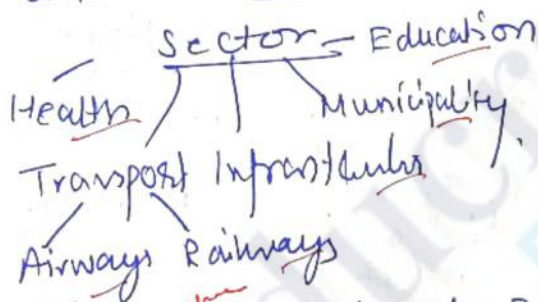 Sector - Education
Health
Municipality
Transport Infrastructure
Airways Railways